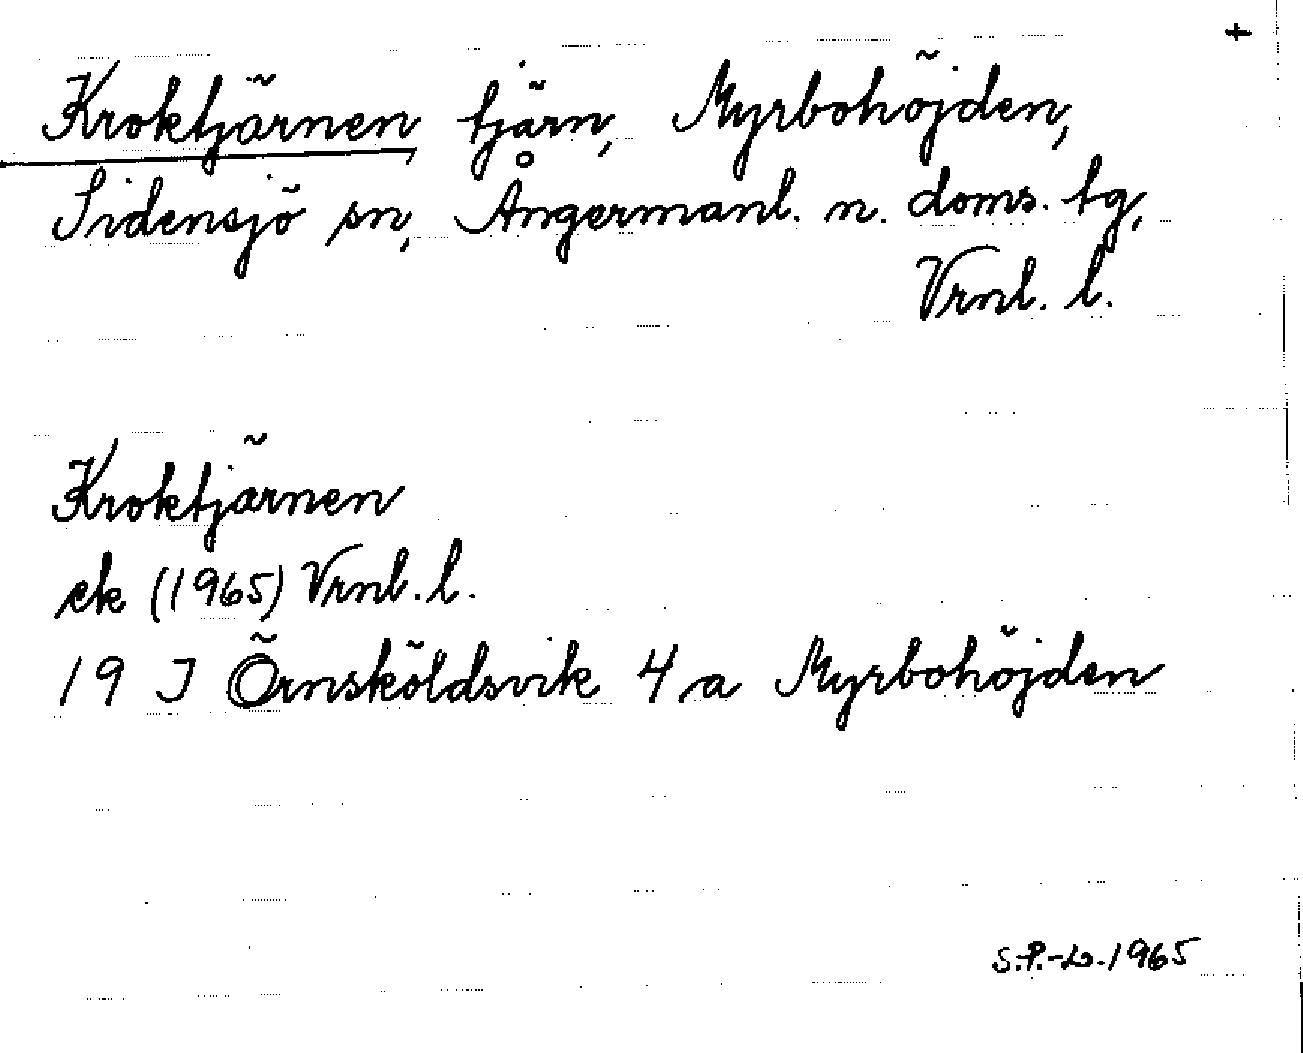 +
Kroktjärnen, tjärn, Myrbohöjden,
Sidensjö sn, Ångermanl. n. doms. tg,
Vrnl. l.
Kroktjärnen
ek (1965) Vrnl. l.
19 J Örnsköldsvik 4 a Myrbohöjden
S.P.-L. 1965